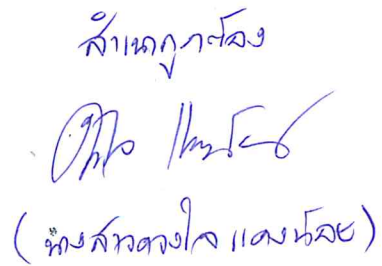 สำเนาถูกต้อง
(นางสาวดวงใจ แดงน้อย)